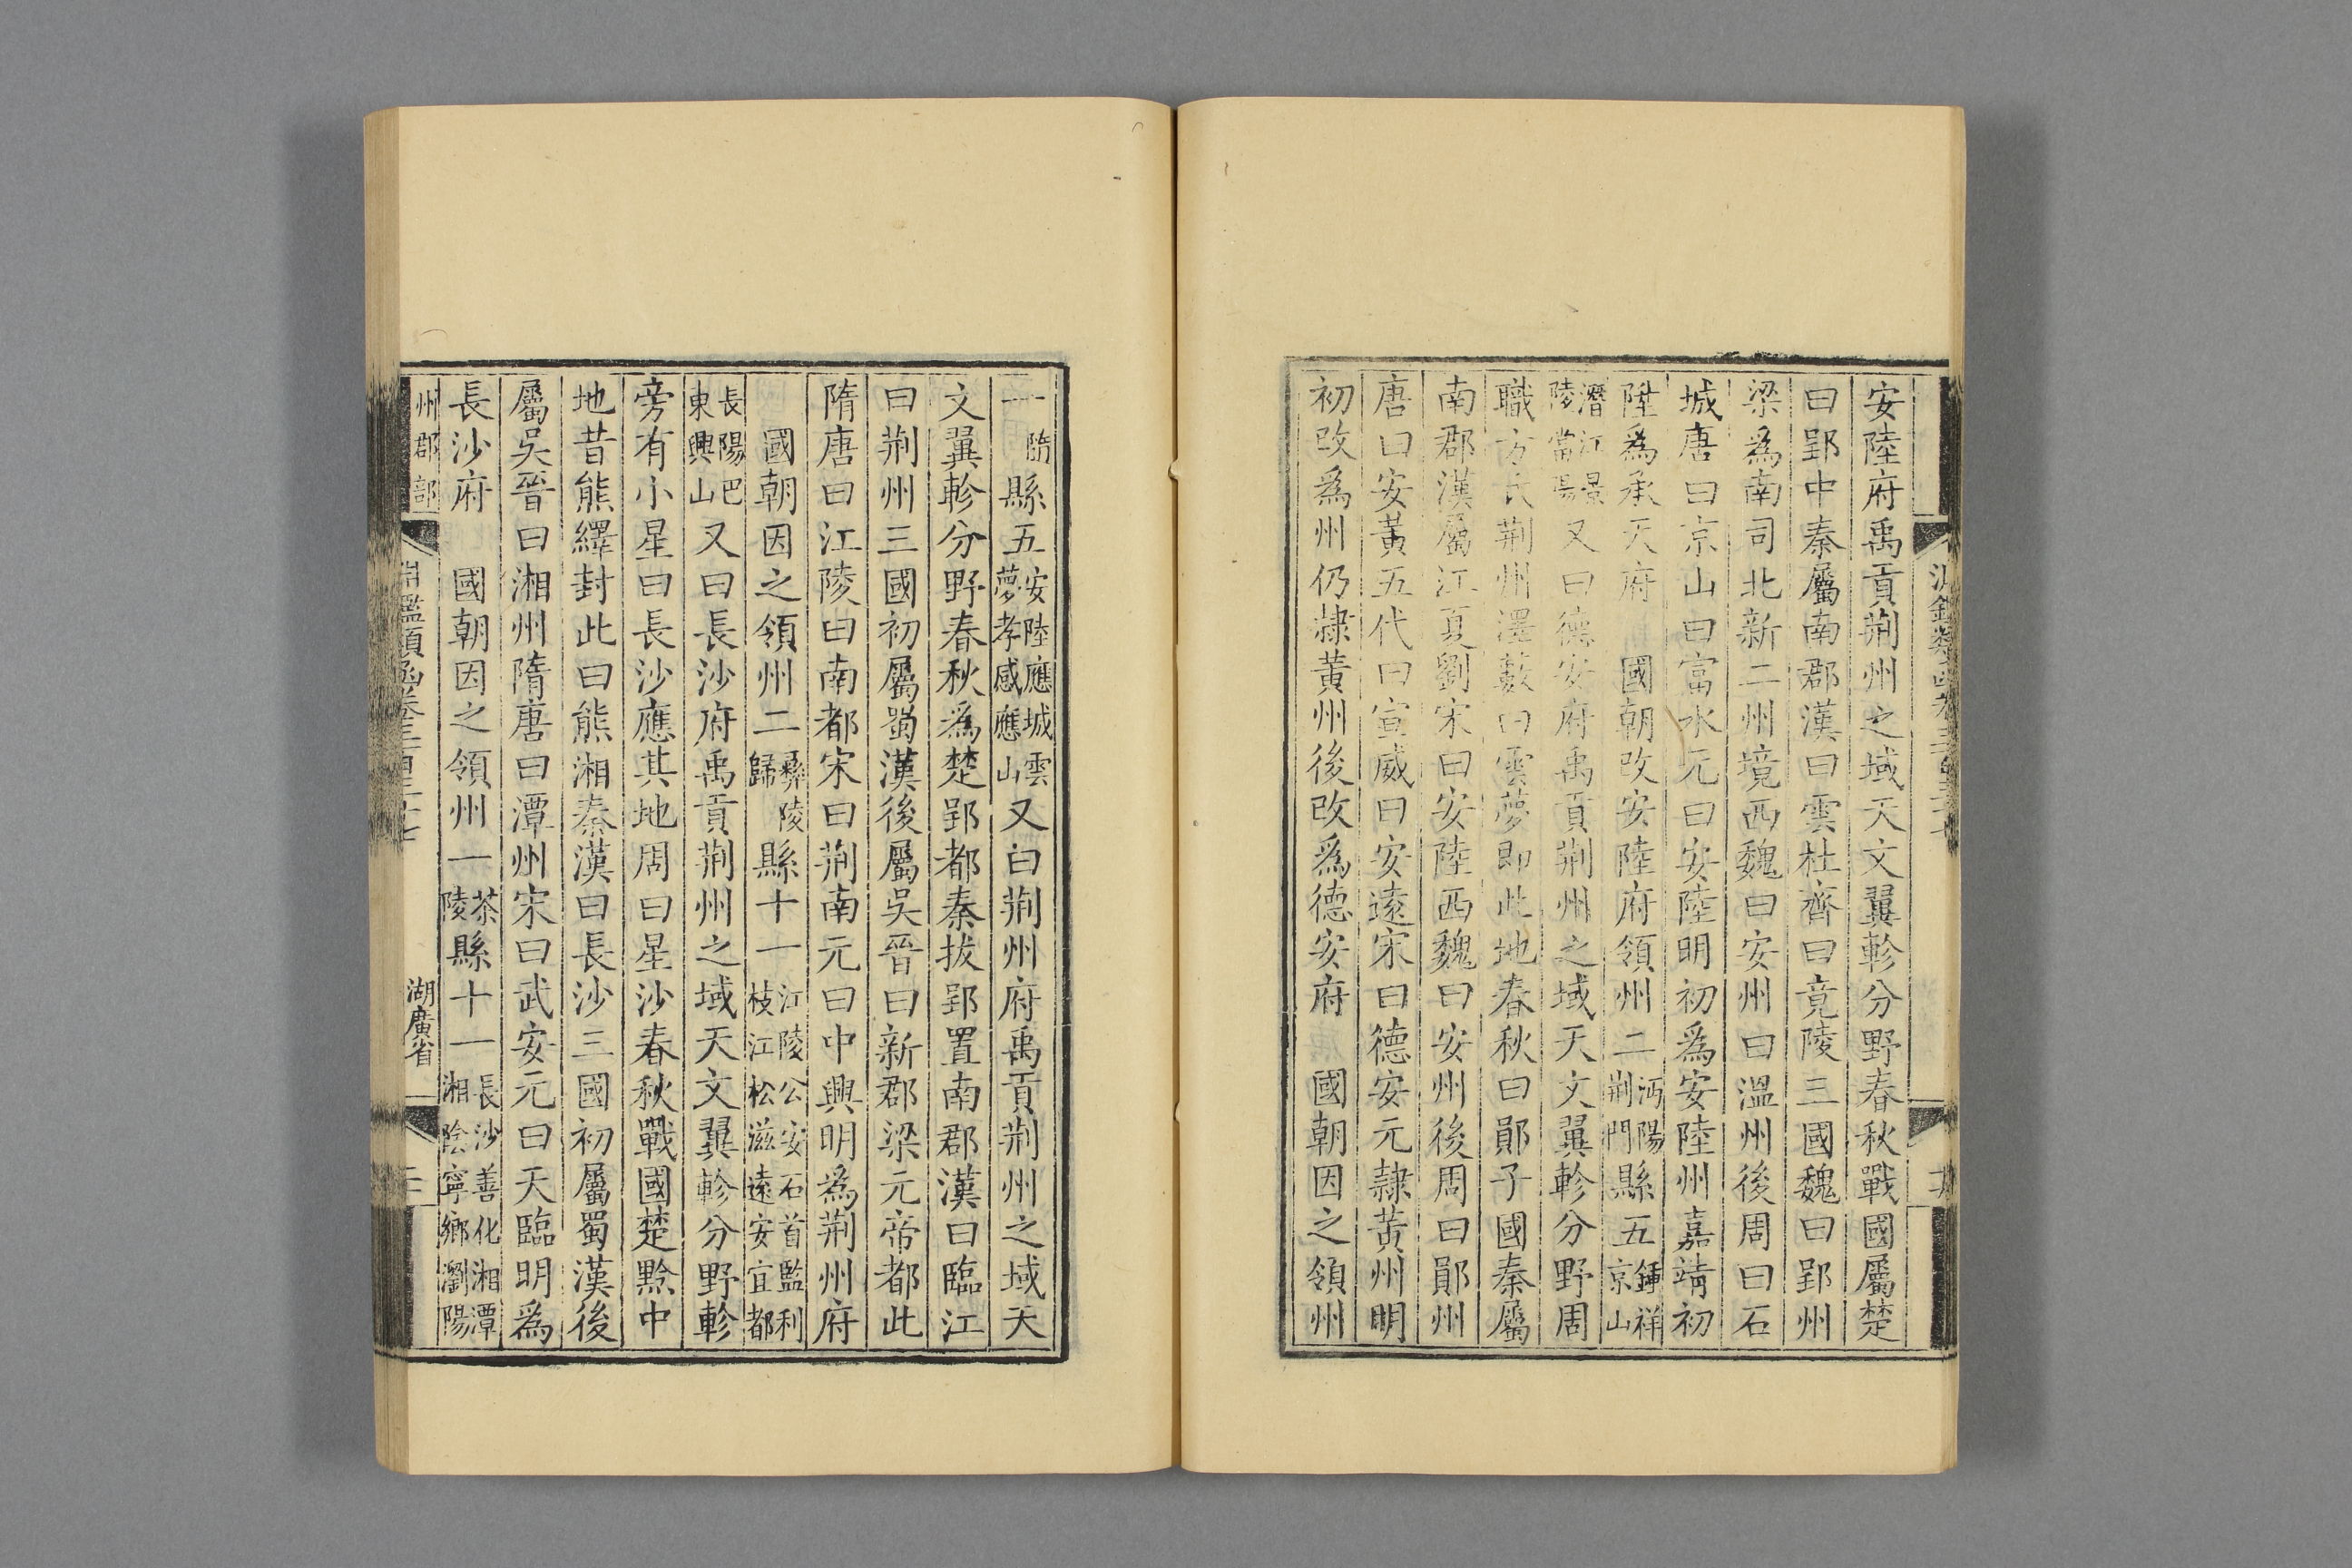 安陸府禹貢荆州之域天文翼軫分野春秋戰國屬楚
曰郢中秦屬南郡漢曰雲杜齊曰竟陵三國魏曰郢州
梁爲南司北新二州境西魏曰安州曰溫州後周曰石
城唐曰京山曰富水元曰安陸明初爲安陸州嘉靖初
陞爲承天府 國朝改安陸府領州二沔陽荆門縣五鍾祥京山
潛江景陵當陽又曰德安府禹貢荆州之域天文翼軫分野周
職方氏荆州澤藪曰雲夢即此地春秋曰鄖子國秦屬
南郡漢屬江夏劉宋曰安陸西魏曰安州後周曰鄖州
唐曰安黃五代曰宣威曰安遠宋曰德安元隷黃州明
初改爲州仍隷黃州後改爲德安府 國朝因之領州
一隨縣五安陸應城雲夢孝感應山又曰荆州府禹貢荆州之域天
文翼軫分野春秋爲楚郢都秦拔郢置南郡漢曰臨江
曰荆州三國初屬蜀漢後屬吳晉曰新郡梁元帝都此
隋唐曰江陵曰南都宋曰荆南元曰中興明爲荆州府
國朝因之領州二彝陵歸縣十一江陵公安石首監利枝江松滋遠安宜都
長陽巴東興山又曰長沙府禹貢荆州之域天文翼軫分野軫
旁有小星曰長沙應其地周曰星沙春秋戰國楚黔中
地昔熊繹封此曰熊湘秦漢曰長沙三國初屬蜀漢後
屬吳晉曰湘州隋唐曰潭州宋曰武安元曰天臨明爲
長沙府 國朝因之領州一茶陵縣十一長沙善化湘潭湘陰寧鄉瀏陽
州郡部
湖廣省一